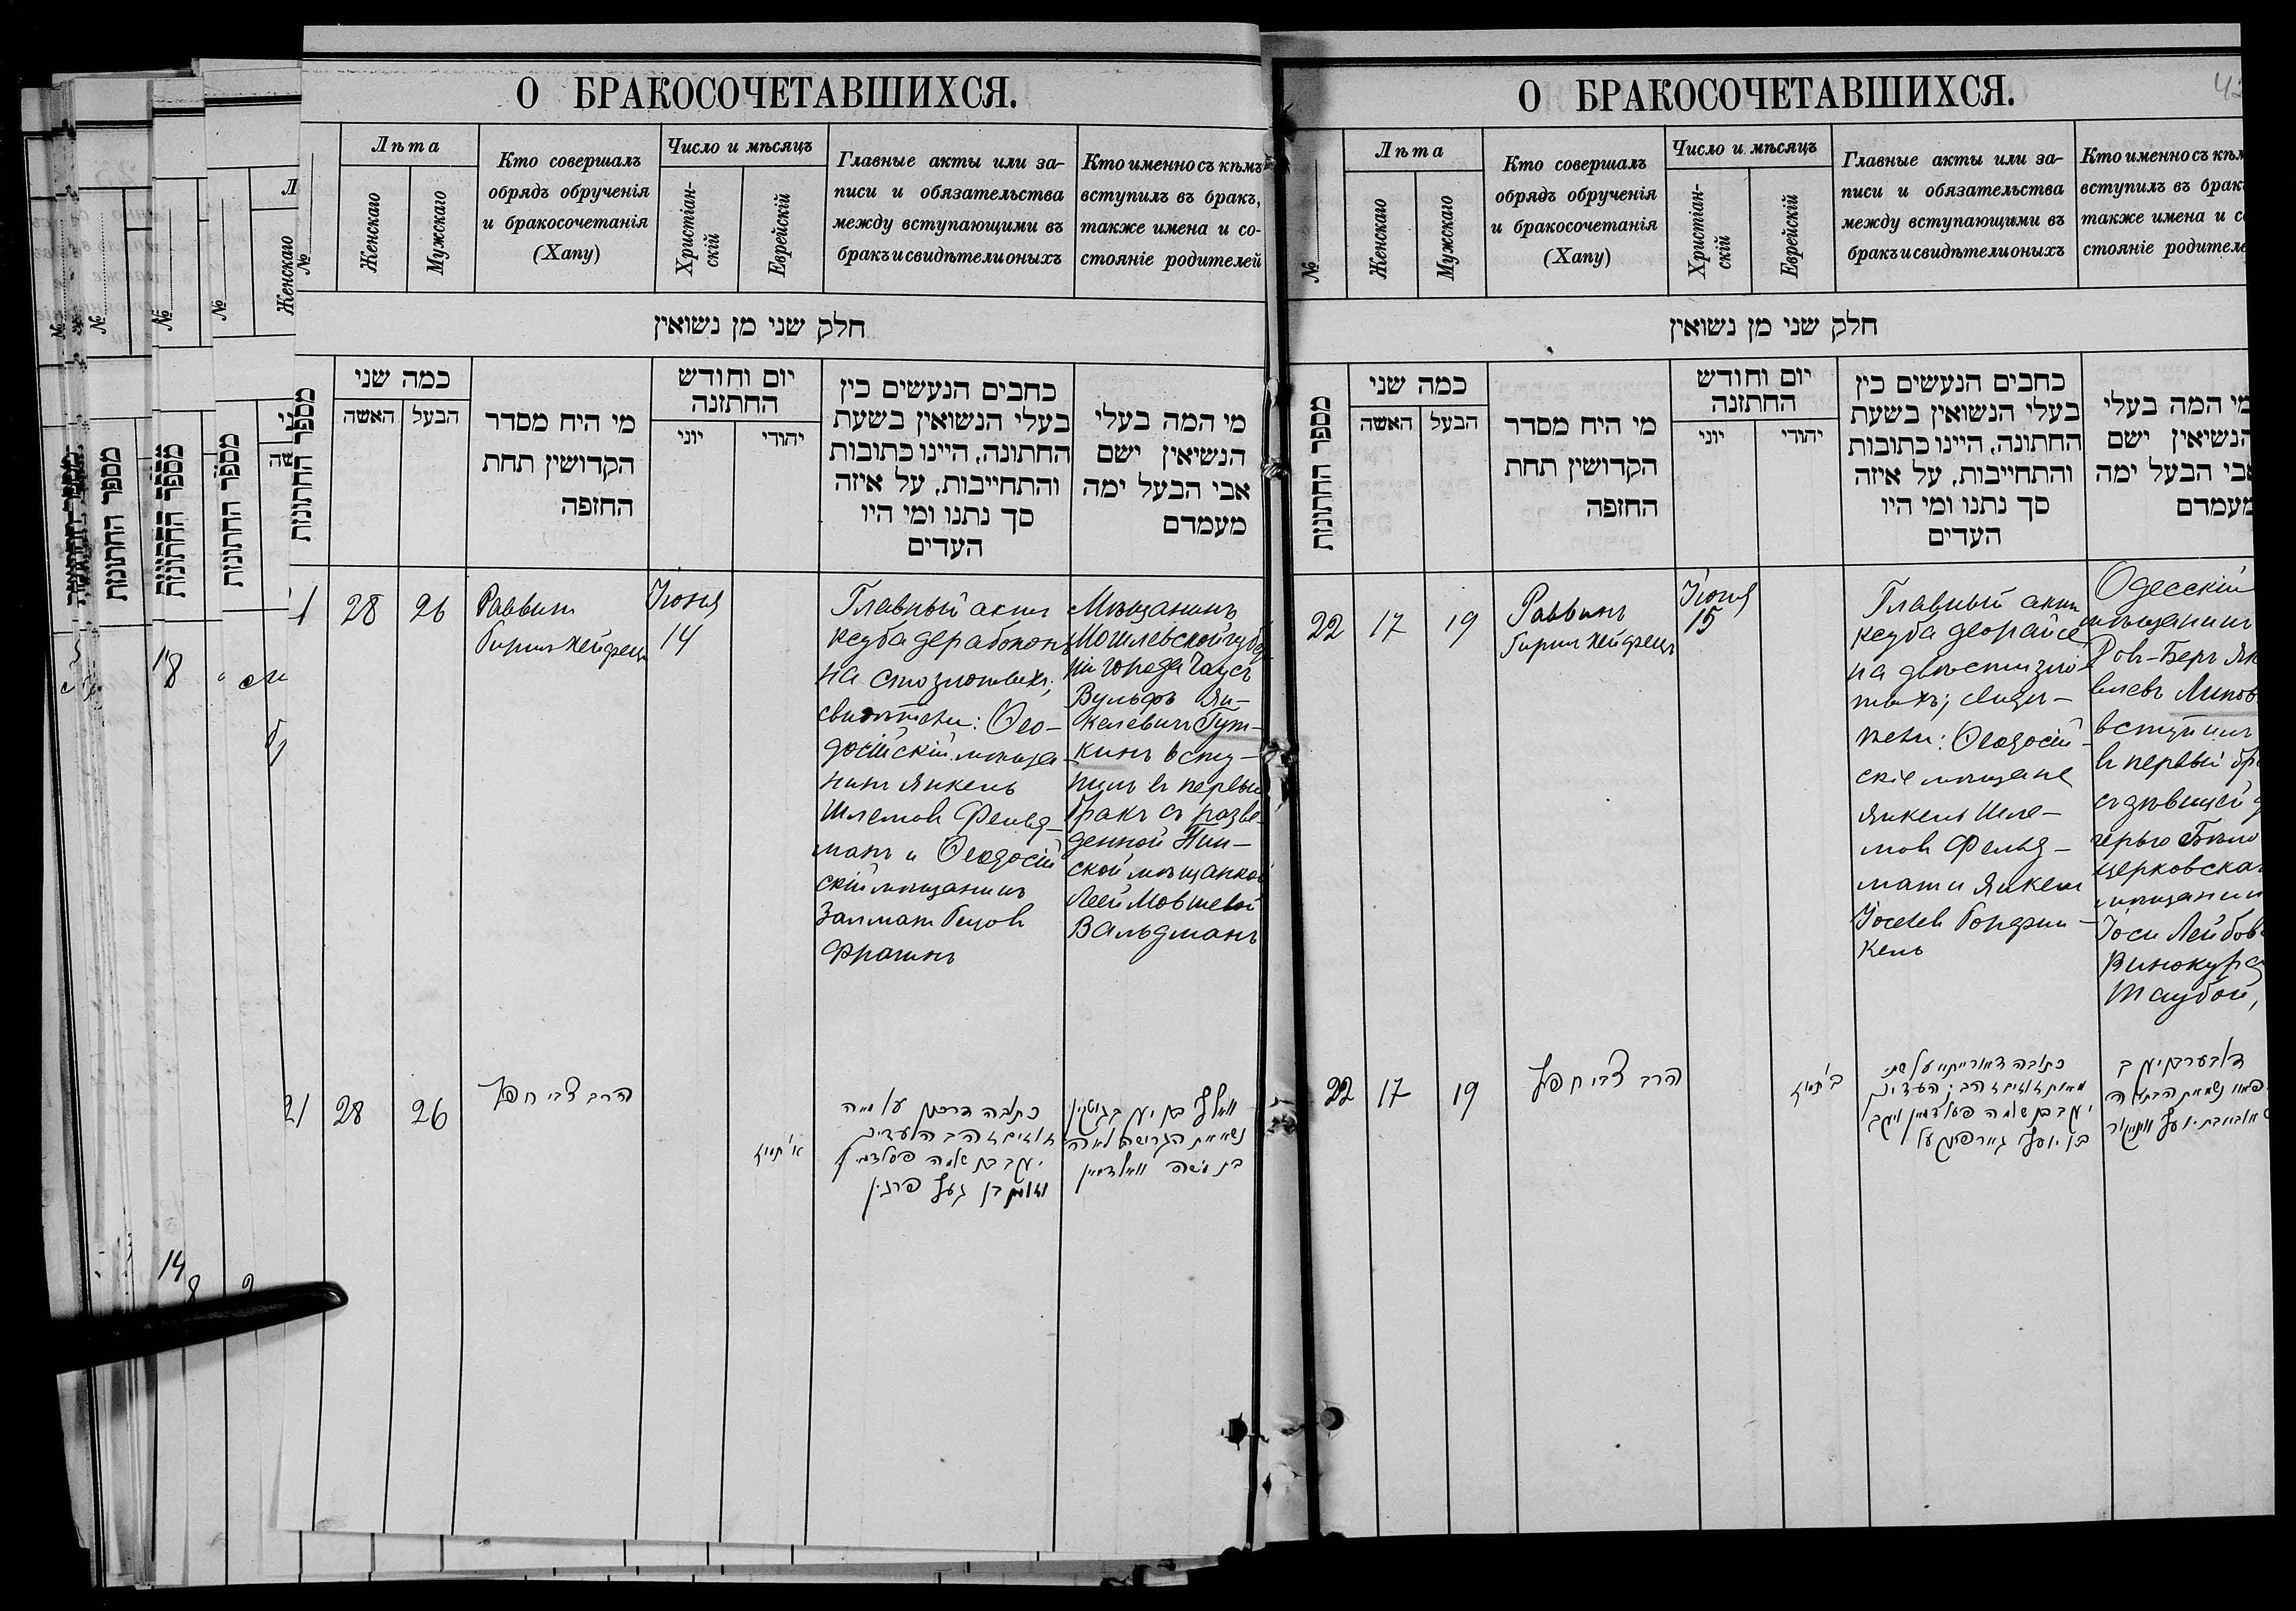 О БРАКОСОЧЕТАВШИХСЯ.
№
Лѣта
Женскаго
Мужскаго
Кто совершалъ
обрядъ обрученія
и бракосочетанія
(Хапу)
Число и мѣсяцъ
Христіан-
скій
Еврейскій
Главные акты или за-
писи и обязательства
между вступающими въ
бракъ и свидѣтели оныхъ
Кто именно съ кѣмъ
вступилъ въ бракъ,
также имена и со-
стояніе родителей
חלק שני מן נשואין
מספר החתונות
כמה שני
האשה
הבעל
מי היח מסדר
הקדושין תחת
החופה
יום וחודש
החתונה
יוני
יהודי
כתבים הנעשים בין
בעלי הנשואין בשעת
החתונה, היינו כתובות
והתחייבות, על איזה
סך נתנו ומי היו
העדים
מי המה בעלי
הנשיאין ישם
אבי הבעל ימה
מעמדם
21
28
26
Раввинъ
Гиршъ Хейфецъ
Іюня
14
Главный актъ
кедуба дерабононъ
на сто злотыхъ;
свидѣтели: Ѳео-
досійскій мѣща-
нинъ Янкель
Шлемовъ Фельд-
манъ и Ѳеодосій
скій мѣщанинъ
Залманъ
Фрагинъ
Мѣщанинъ
Могилевской губер
ніи города Чаусъ
Вульфъ Ян-
келевичъ Гут-
кинъ всту-
пилъ въ первый
бракъ съ разве-
денной Пин-
ской мѣщанкой
Леей Мовшевой
Вальдманъ
21
28
26
הרב צבי חפץ
א' תמוז
כתובה דרבנן על מאה
זהובים זהב העדים
יעקב בן שלמה פעלדמאן
וואלף בן יעקב גוטקין
נשא את הגרושה לאה
בת משה וואלדמאן
О БРАКОСОЧЕТАВШИХСЯ.
№
Лѣта
Женскаго
Мужскаго
Кто совершалъ
обрядъ обрученія
и бракосочетанія
(Хапу)
Число и мѣсяцъ
Христіан-
скій
Еврейскій
Главные акты или за-
писи и обязательства
между вступающими въ
бракъ и свидѣтели оныхъ
Кто именно съ кѣм
вступилъ въ брак
также имена и с
стояніе родителе
חלק שני מן נשואין
מספר החתונות
כמה שני
האשה
הבעל
מי היח מסדר
הקדושין תחת
החופה
יום וחודש
החתונה
יוני
יהודי
כתבים הנעשים בין
בעלי הנשואין בשעת
החתונה, היינו כתובות
והתחייבות, על איזה
סך נתנו ומי היו
העדים
מי המה בעלי
הנשיאין ישם
אבי הבעל ימה
מעמדם
22
17
19
Раввинъ
Гиршъ Хейфецъ
Іюня
15
Главный актъ
кедуба деорайсе
на двѣсти зло-
тыхъ; свидѣ-
тели: Ѳеодосій-
скіе мѣщане
Янкель Шле-
мовъ Фельд-
манъ и Янкель
Іосевъ
кель
Одесскій
мѣщанинъ
Дов-Беръ Янк
елевъ Липов
вступилъ
въ первый бра
съ дѣвицей до
черью Бѣло
церковскаго
мѣщанина
Іоси Лейбова
Винокура
Таубой,
22
17
19
הרב צבי חפץ
ב' תמוז
כתובה דאורייתא על שתי
מאות זהובים זהב; העדים
יעקב בן שלמה פעלדמאן ויעקב
בן יוסף
דוב בער בן יעקב